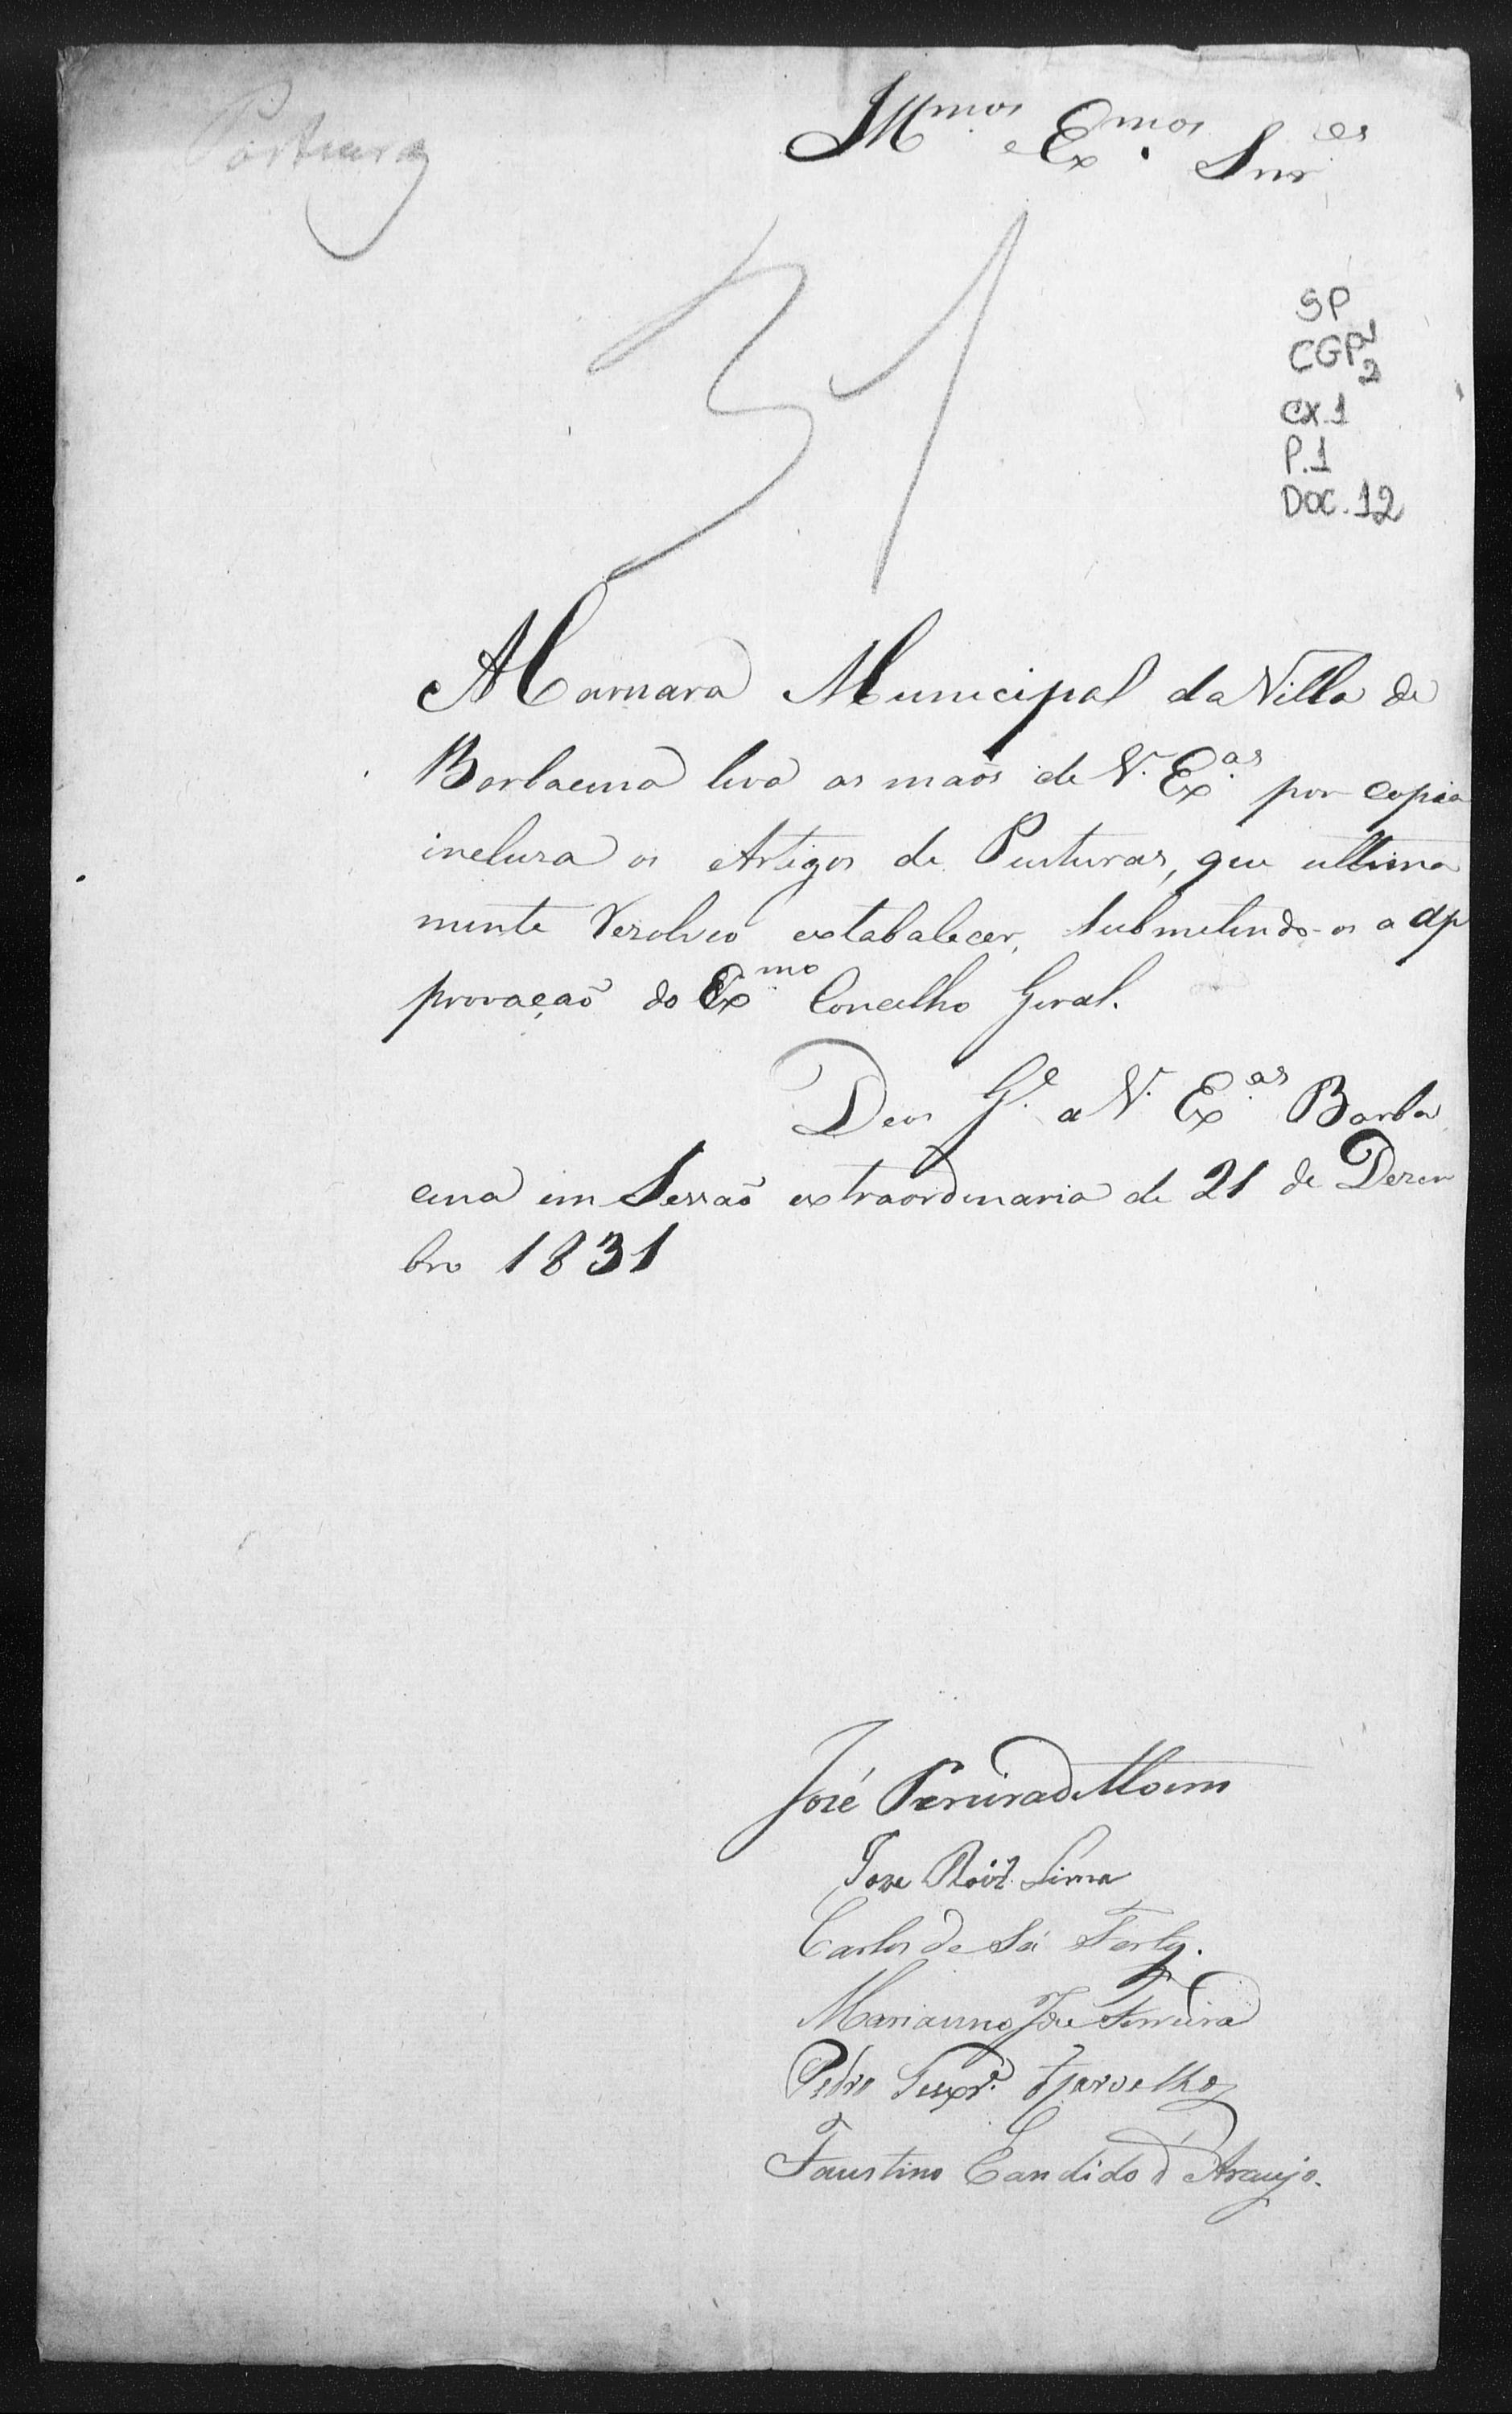 Postura
Illmos e Exmos Snres
31
SP
CGP 1/2
CX.1
P.1
DOC.12
A Camara Municipal da Villa de
Barbacena leva as maõs de V. Exas por copia
inclusa os Artigos de Pusturas, que ultima
mente resolveo extabalecer, submetendo-os a ap
provaçaõ do Exmo Concelho Geral.
Deos Ge a V. Exas Barba
cena em Sessaõ extraordinaria de 21 de Dezem
bro 1831
José Pereira de
Jose Roiz Lima
Carlos de Sá Forts.
Marianno Jose Ferreira
Pedro Teixra. de Carvalho
Faustino Candido d'Araujo.